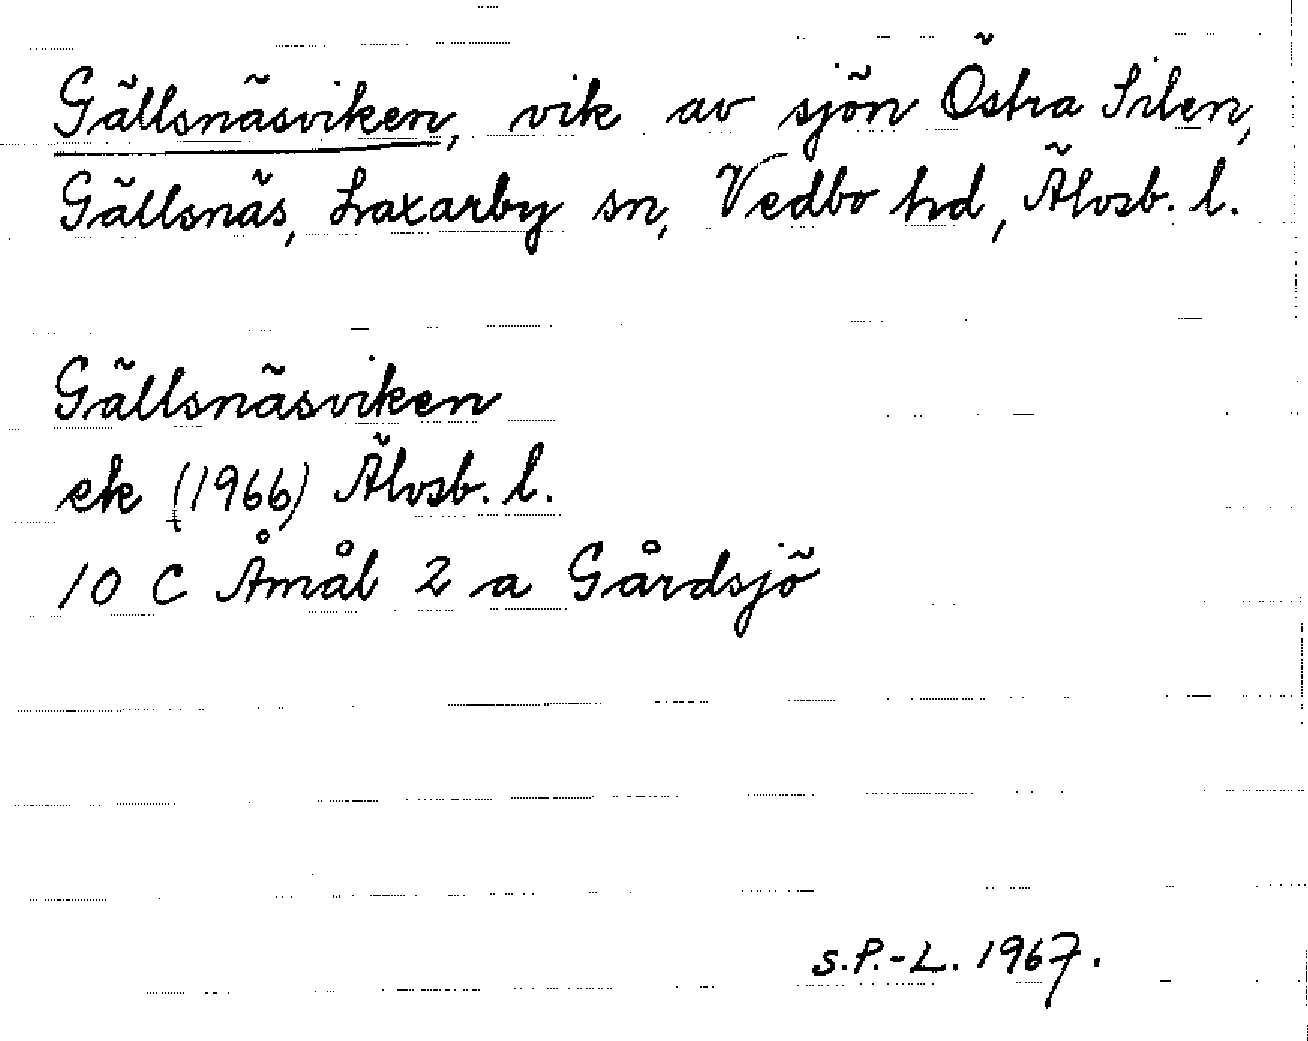 Gällsnäsviken, vik av sjön Östra Silen,
Gällsnäs, Laxarby sn, Vedbo hd, Älvsb. l.
Gällsnäsviken
ek (1966) Älvsb. l.
10 C Åmål 2 a Gårdsjö
S.P.-L. 1967.